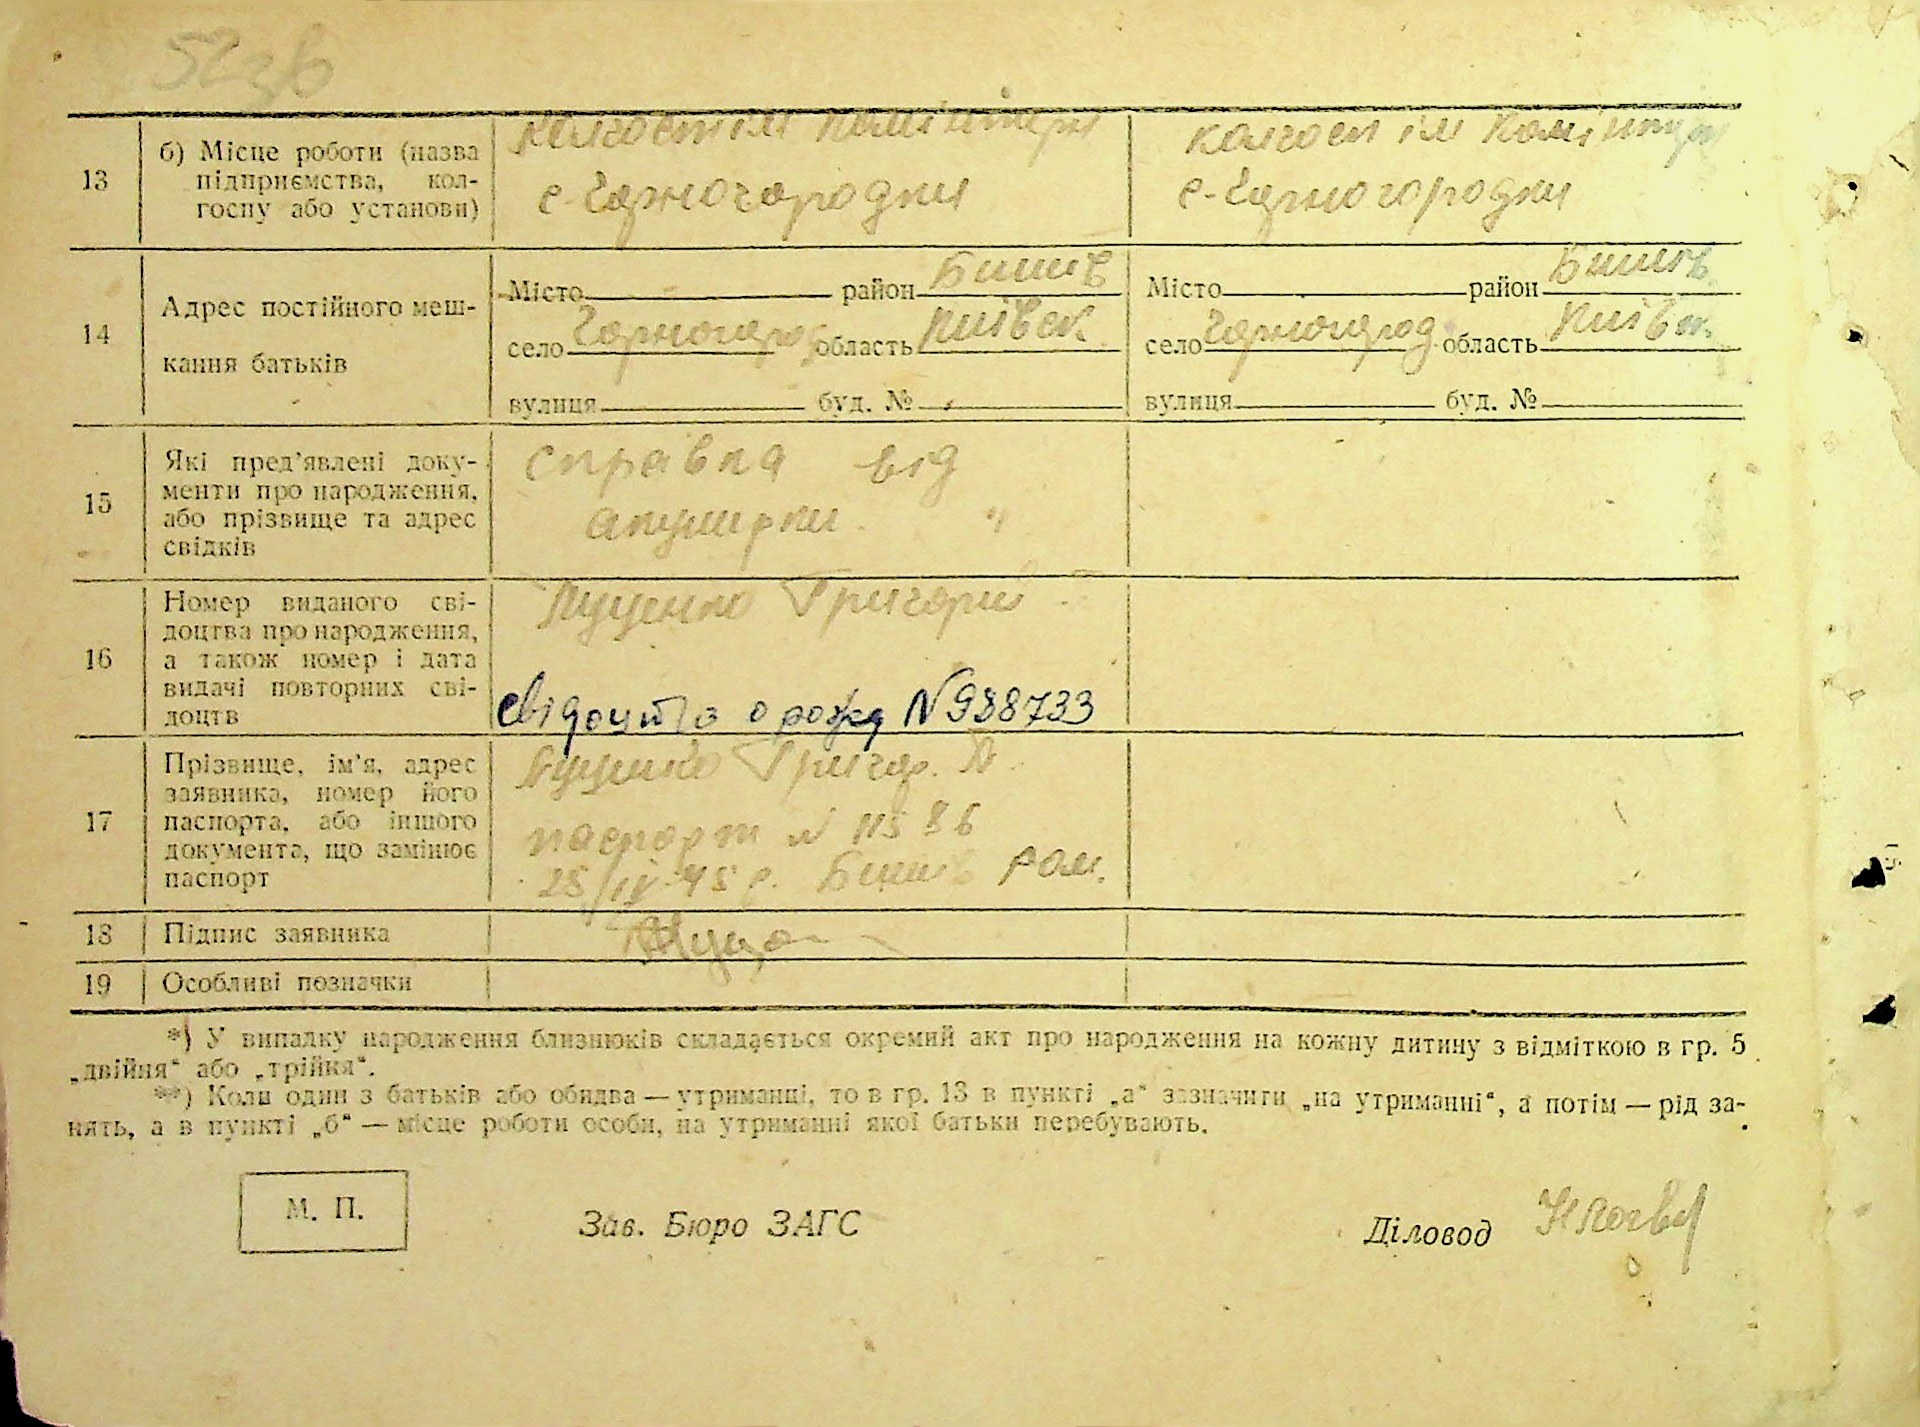 52зв
13 б) Місце роботи (назва підприємства, колгоспу або установи)
колгосп ім Комінтерн
с-Чорногородки
колгосп ім Комінтерн
с-Чорногородки
14 Адрес постійного мешкання батьків
Місто район Бишів
село Чорногород область Київск.
вулиця буд. №
Місто район Бишів
село Чорногород область Київск.
вулиця буд. №
15 Які пред'явлені документи про народження, або прізвище та адрес свідків
справка від
акушерки
16 Номер виданого свідоцтва про народження, а також номер і дата видачі повторних свідоцтв
Луценко Григорій
свідоцтво о рожд N 988733
17 Прізвище, ім'я, адрес заявника, номер його паспорта, або іншого документа, що замінює паспорт
Луценко Григор.
паспорт N 11586
25/IV-45 р. Бишів
18 Підпис заявника
19 Особливі позначки
*) У випадку народження близнюків складається окремий акт про народження на кожну дитину з відміткою в гр. 5
„двійня“ або „трійня“.
**) Коли один з батьків або обидва — утриманці, то в гр. 13 в пункті „а“ зазначити „на утриманні“, а потім — рід за-
нять, а в пункті „б“ — місце роботи особи, на утриманні якої батьки перебувають.
М. П.
Зав. Бюро ЗАГС
Діловод